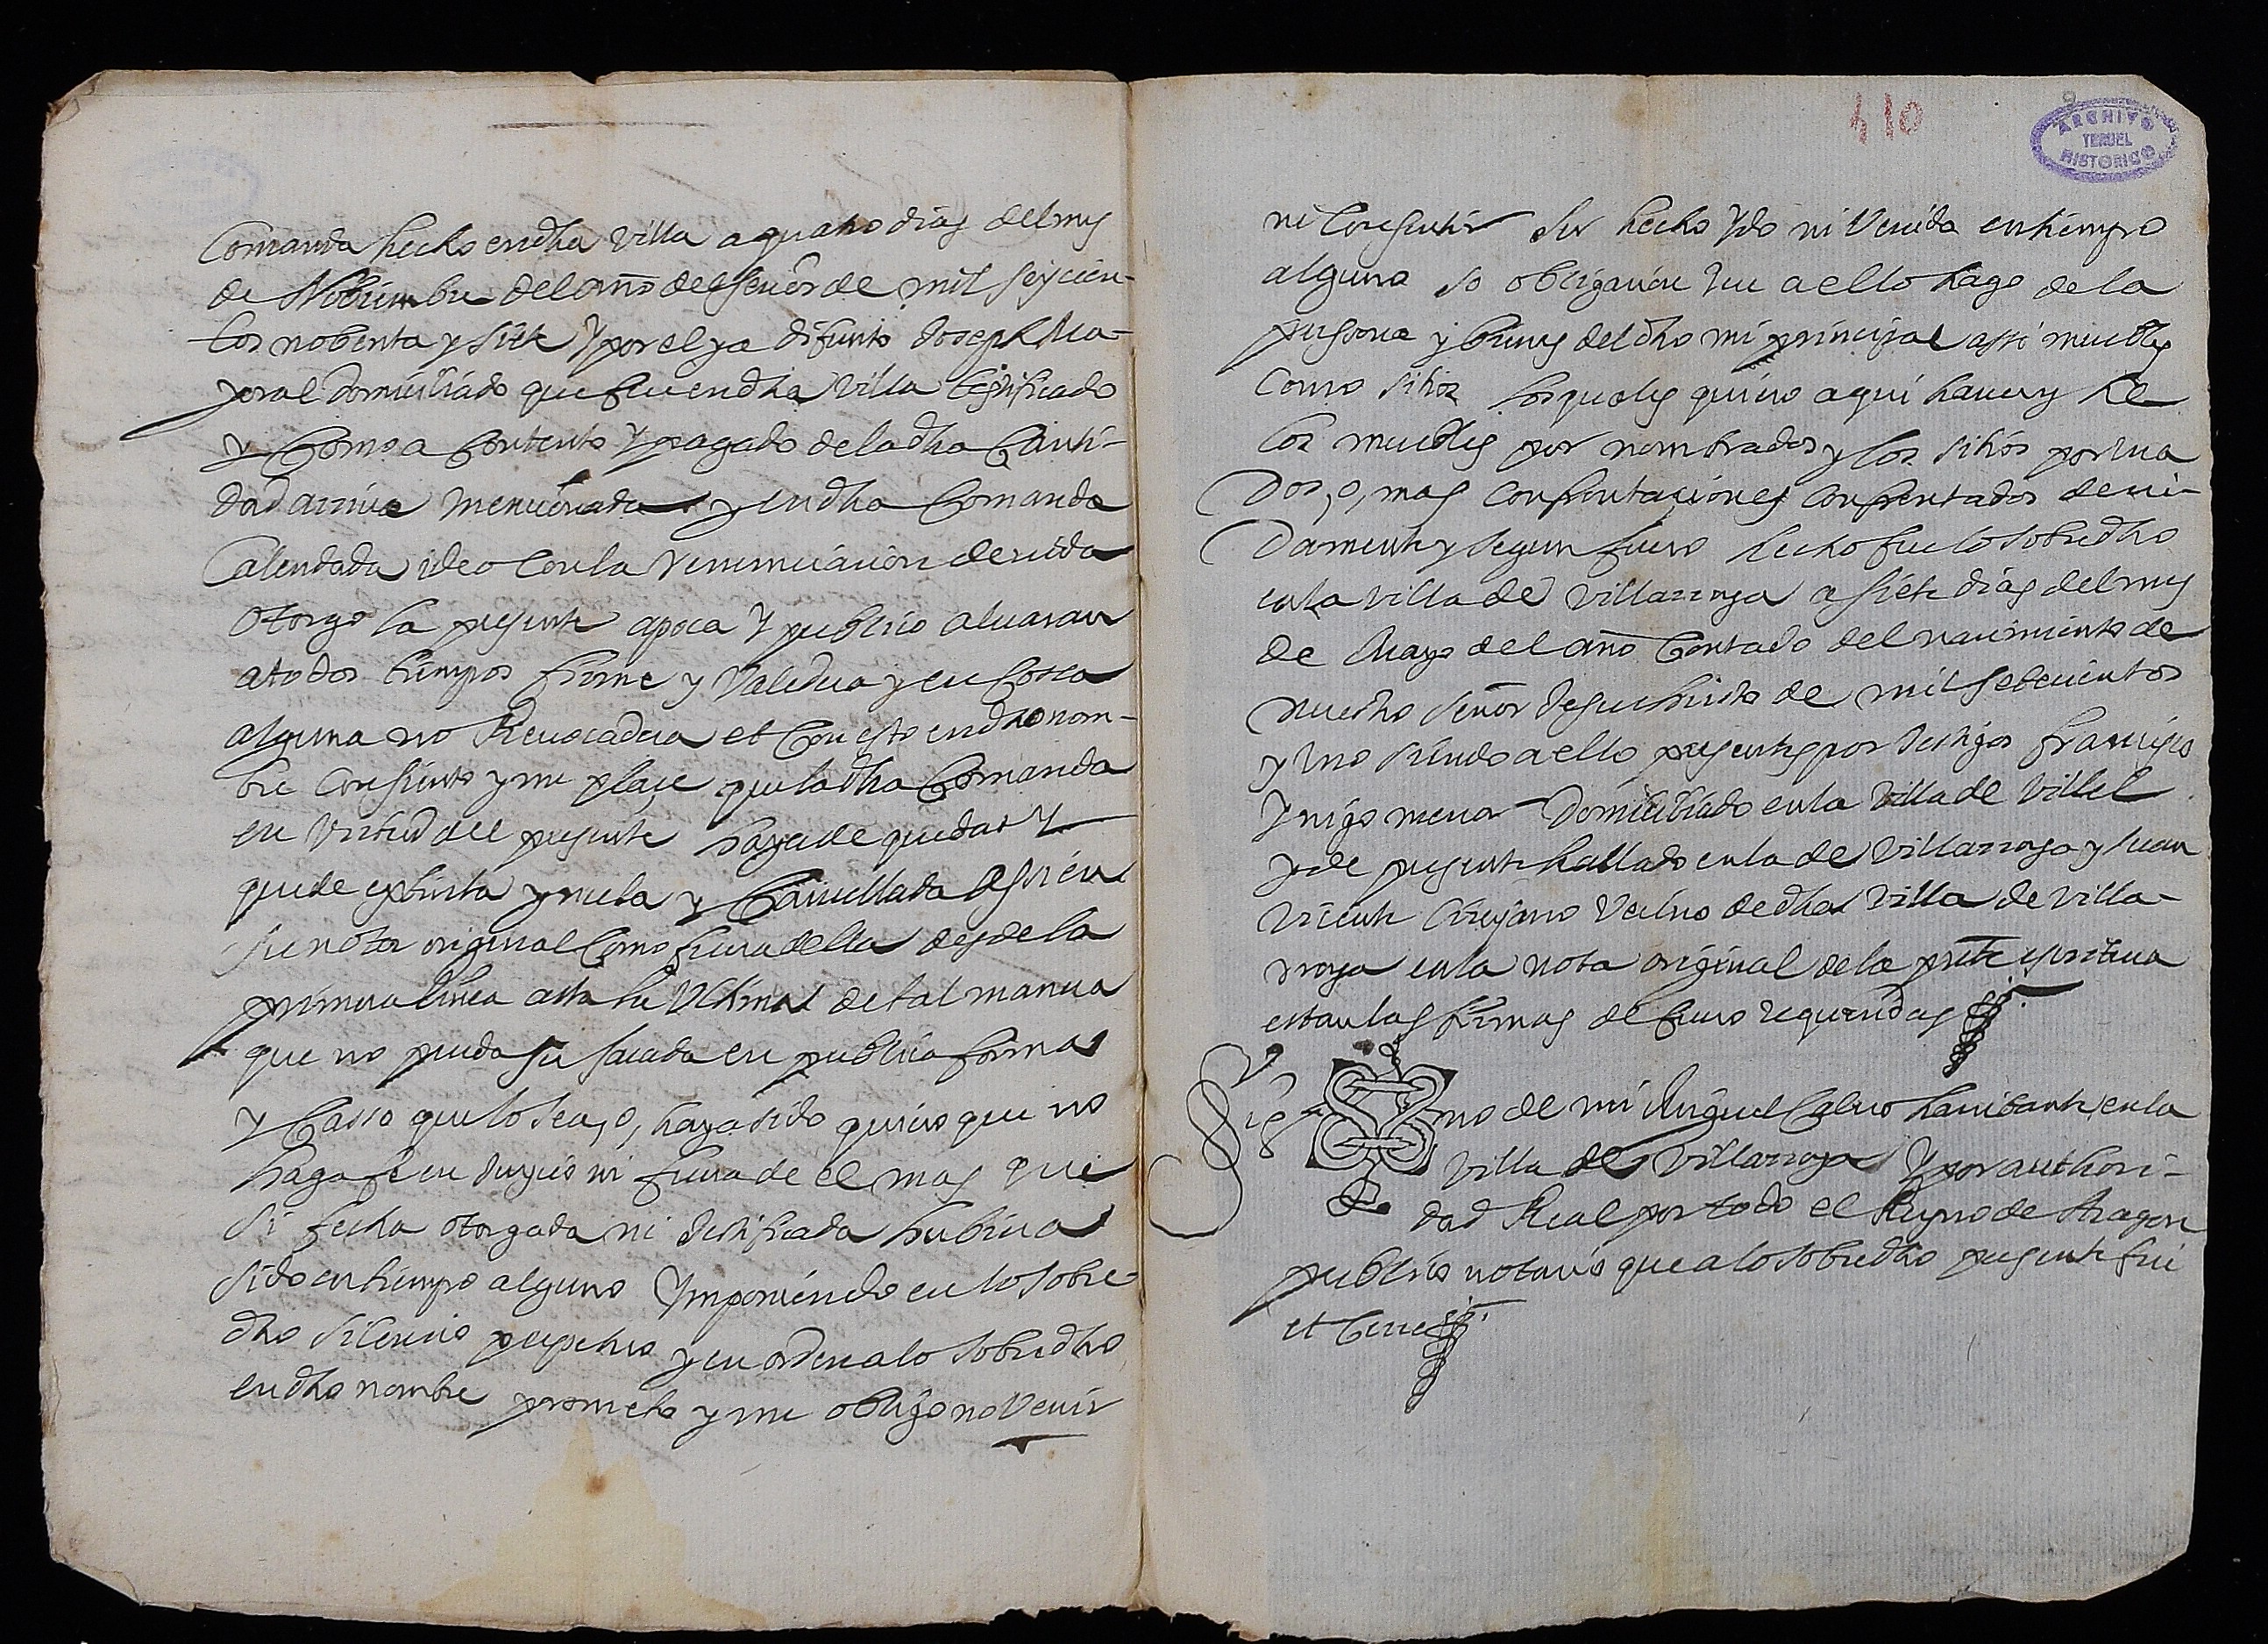 Comanda hecho en dha Villa a quatro dias del mes
de Nobiembre del año del Señor de mil seyscien-
tos nobenta y siete Y por el ya difunto Joseph Ma-
yoral Domiciliado que fue en dha Villa testificado
Y Como a Contento Y pagado de la dha Canti-
dad arriva mencionada y en dha Comanda
Calendada ideo Con la Renunciacion devida
otorgo la presente apoca Y publico alvaran
a todos tiempos firme y Valedera y en Cosa
alguna no Revocadera et Con esto en dho nom-
bre Consiento y me plaze que la dha Comanda
en Virtud del presente haya de quedar Y
quede extinta y nula y Cancellada assi en
su nota original Como fuera della desde la
primera linea asta la Ultima de tal manera
que no pueda ser sacada en publica forma
Y Casso que lo sea, o, haya sido quiero que no
haga fe en Juycio ni fuera de el mas que
si fecha otorgada ni testificada hubiera
sido en tiempo alguno Ymponiendo en lo sobre
dho silencio perpetuo y en orden a lo sobredho
en dho nombre prometo y me obligo no Venir
410
ARCHIVO
TERUEL
HISTORICO
ni Consentir ser hecho Ydo ni Venido en tiempo
alguno so obligacion que a ello hago de la
persona y bienes del dho mi principal assi muebles
Como sitios los quales quiero aqui haver y he
los muebles por nombrados y los sitios por una
Dos, o, mas Confrontaciones Confrentados devi-
Damente y segun fuero hecho fue lo sobredho
en la villa de Villarroya a siete dias del mes
de Mayo del año Contado del nacimiento de
nuestro Señor Jesuchristo de mil setecientos
y uno siendo a ello presentes por testigos Francisco
Ynigo menor Domiciliado en la Villa de Villel
y de presente hallado en la de Villarroya y Juan
Vicente Cirujano Vecino de dha Villa de Villa-
rroya en la nota original de la prete escritura
estan las firmas de fuero requeridas
Sig no de mi Miguel Calvo havitante en la
Villa de Villarroya Y por authori-
dad Real por todo el Reyno de Aragon
publico notario que a lo sobredho presente fui
et Cerre